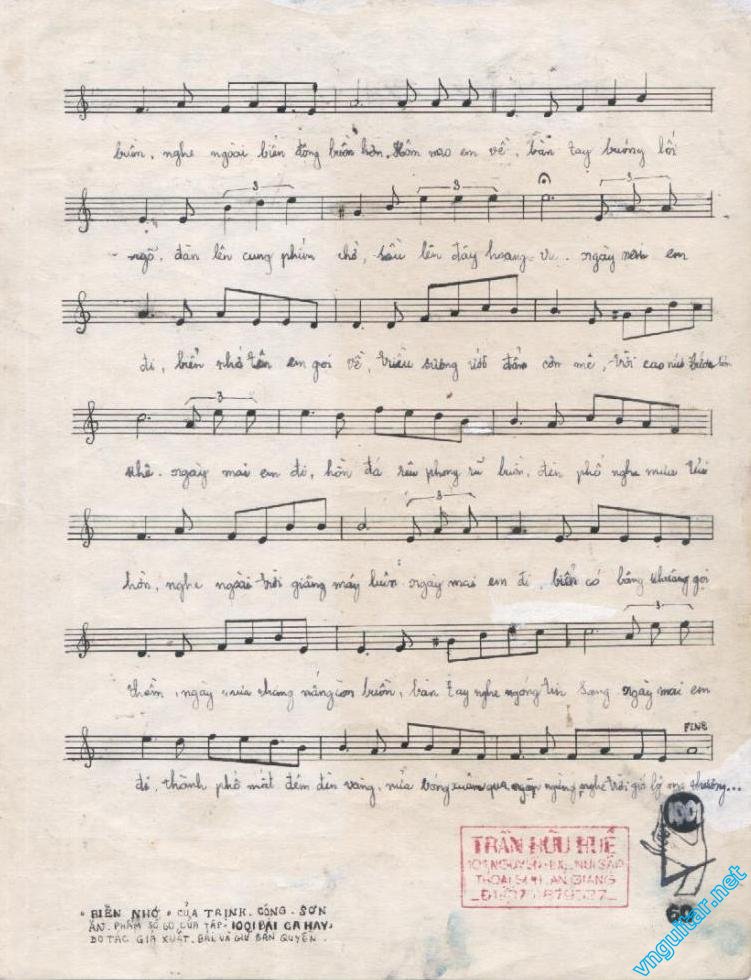 3
buồn, nghe ngoài biển động buồn hơn. Hôm nào em về, bàn tay buông lối
3 3 3
ngõ, đàn lên cung phím chờ, sầu lên đây hoang vu. ngày mai em
đi, biển nhớ tên em gọi về, triều sương ướt đẫm cơn mê, trời cao níu bước sơn
3
khê. ngày mai em đi, hồn đá rêu phong rũ buồn, đèn phố nghe mưa tủi
3
hồn, nghe ngoài trời giăng mây luôn. ngày mai em đi, biển có bâng khuâng gọi
3
thầm, ngày mưa tháng nắng còn buồn, bàn tay nghe ngóng tin sang ngày mai em
FINE
đi, thành phố mắt đêm đèn vàng, nửa bóng xuân qua ngập ngừng, nghe trời gió lộng mà thương...
1001
TRẦN HỮU HUỆ
AN GIANG
60
"BIỂN NHỚ" CỦA TRỊNH. CÔNG. SƠN
ẤN. PHẨM SỐ 60 CỦA TẬP. 1001 BÀI CA HAY.
DO TÁC GIẢ XUẤT. BẢN VÀ GIỮ BẢN QUYỀN.
vnguitar.net